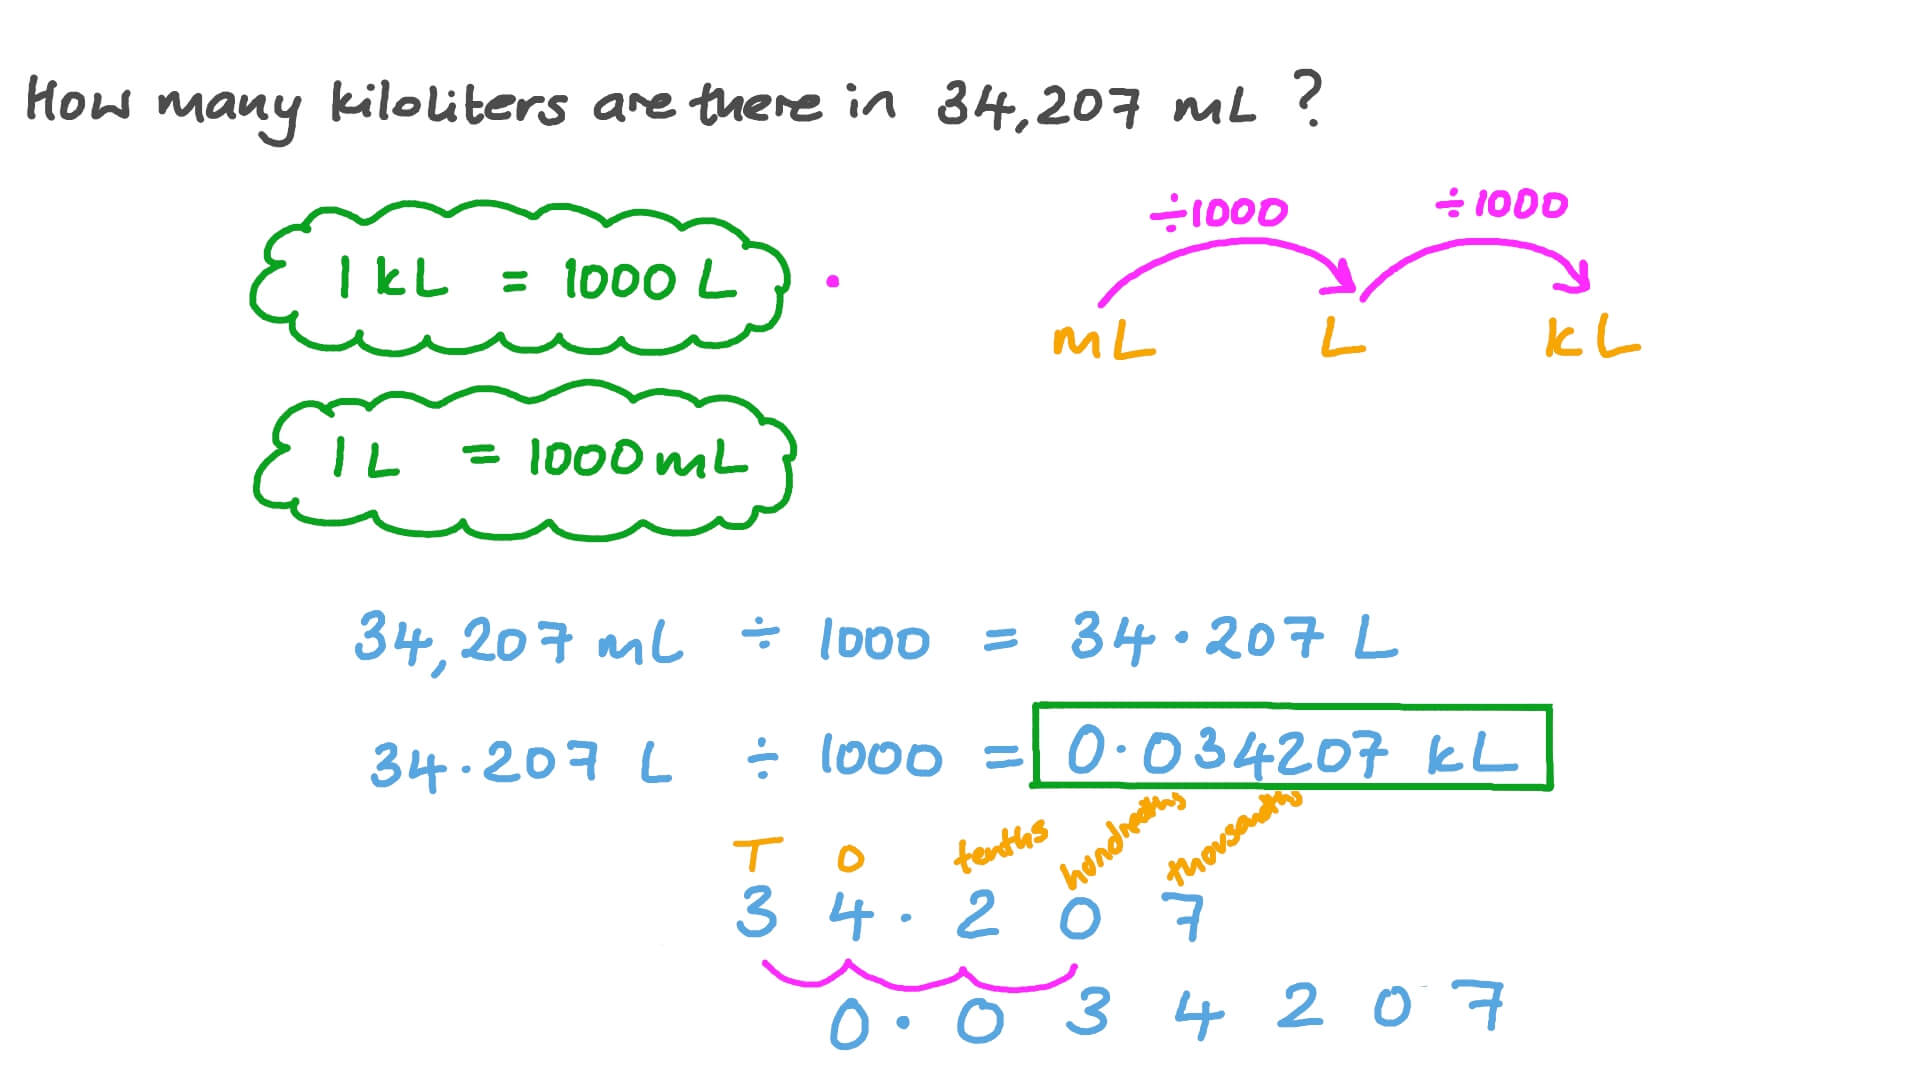 How many kiloliters are there in 34,207 mL ?
÷1000 ÷1000
1 kL = 1000 L
mL L kL
1 L = 1000 mL
34,207 mL ÷ 1000 = 34.207 L
34.207 L ÷ 1000 = 0.034207 kL
T O tenths hundredths thousandths
3 4 . 2 0 7
0 . 0 3 4 2 0 7